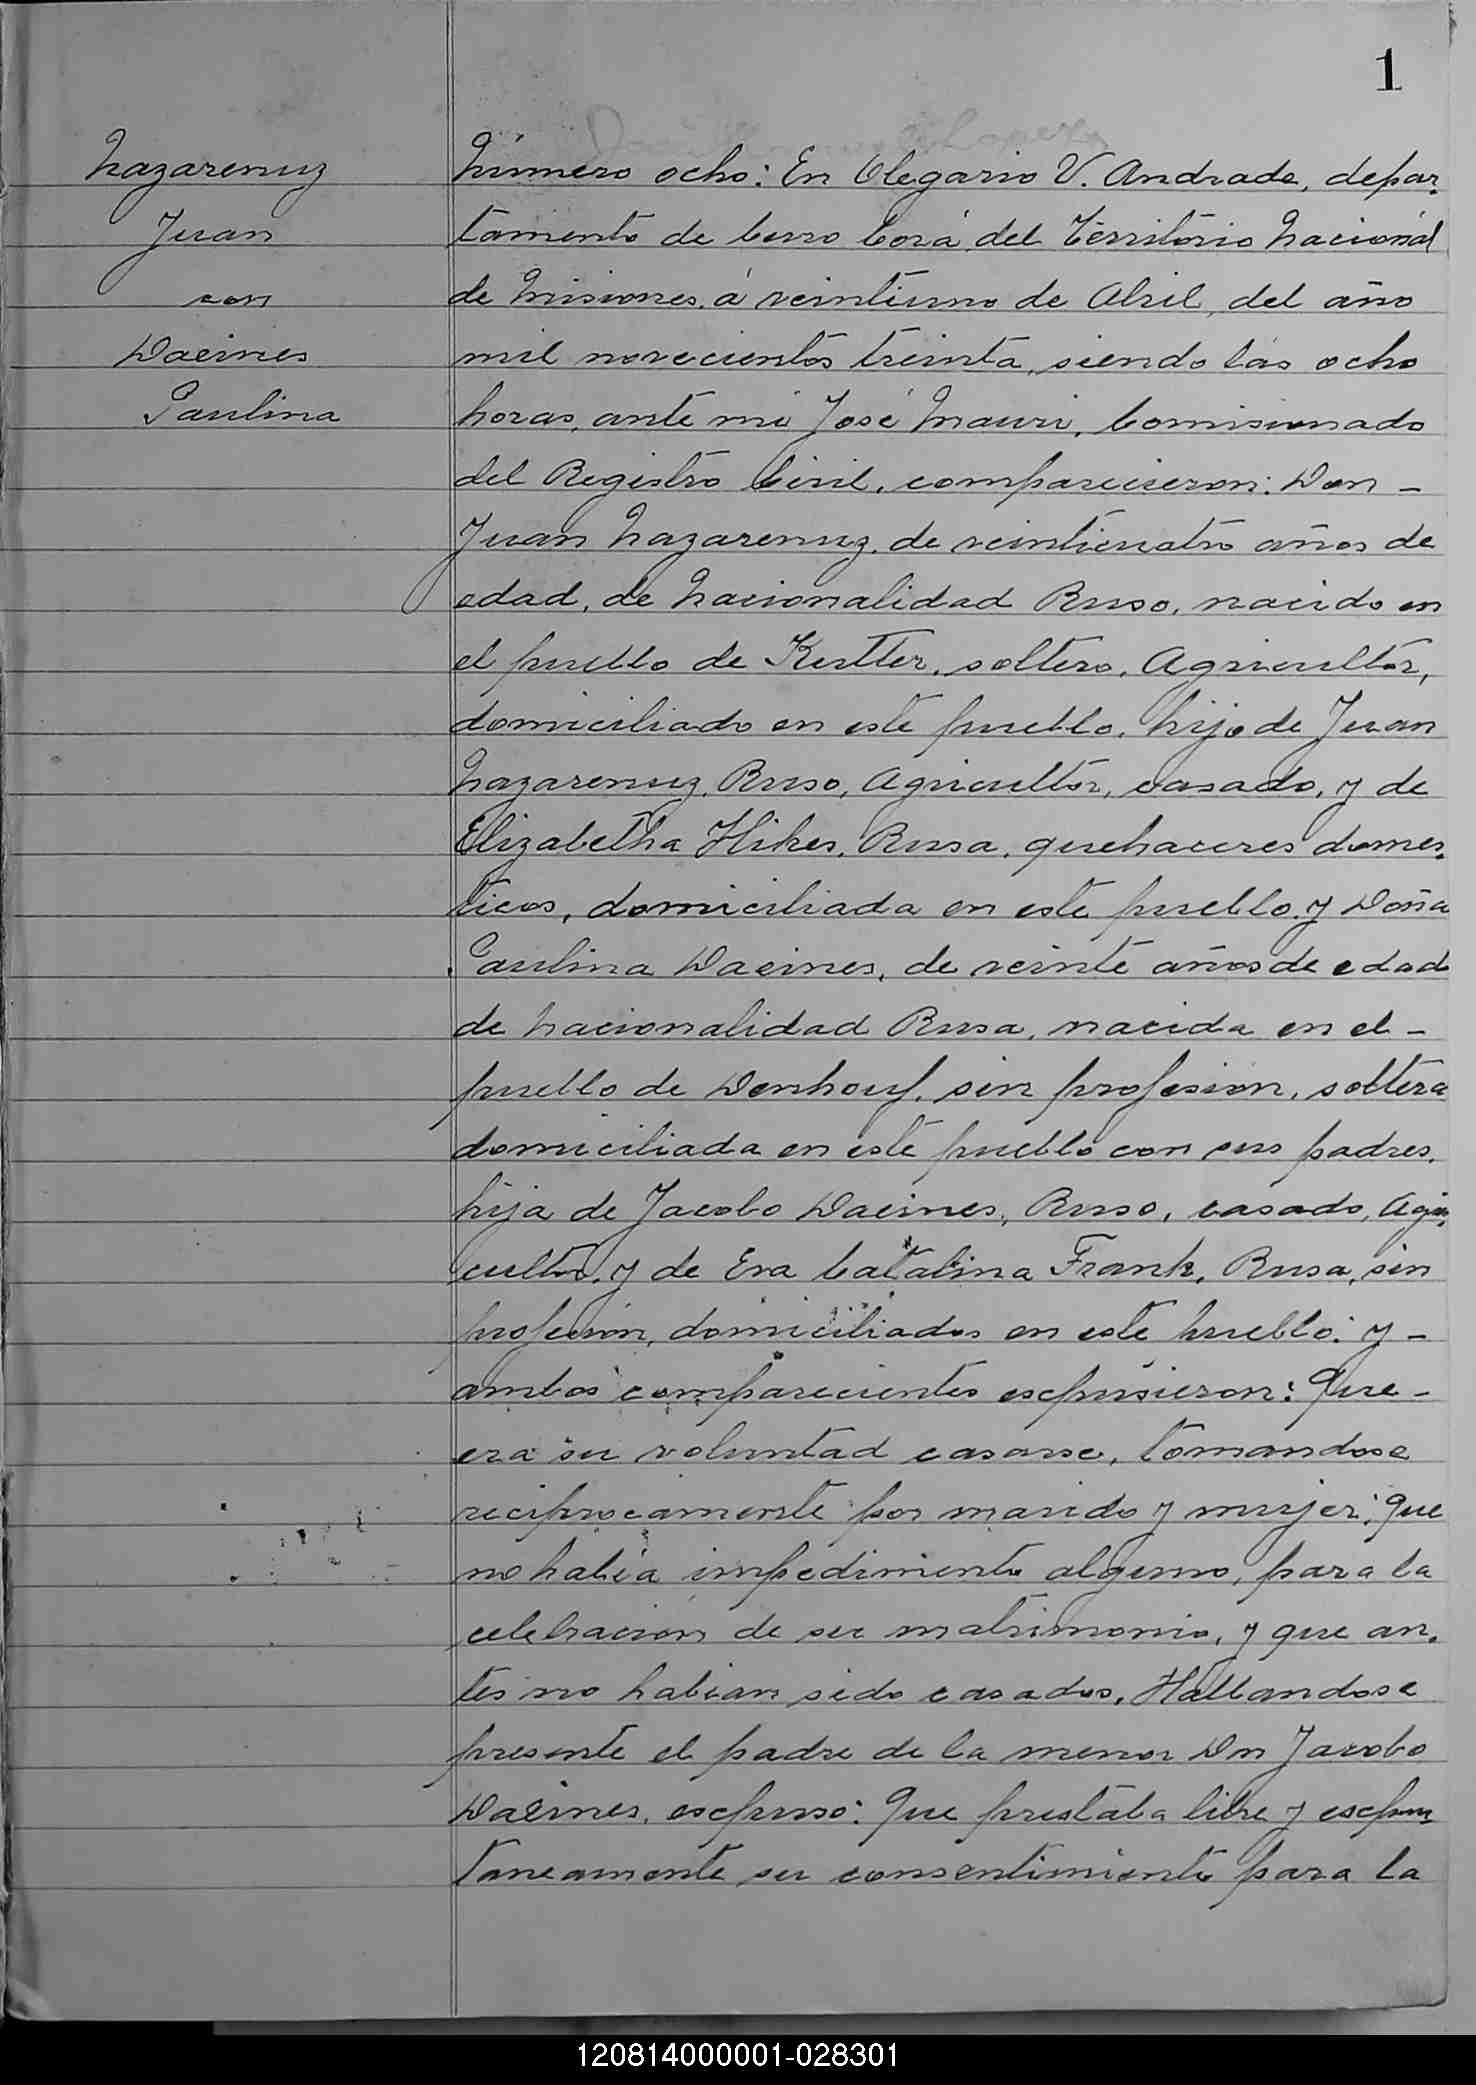 1
Nazarenuz
Juan
con
Daeines
Paulina
Número ocho: En Olegario V. Andrade, depar-
tamento de Cerro Corá del Territorio Nacional
de Misiones, á veintiuno de Abril, del año
mil novecientos treinta, siendo las ocho
horas, ante mi José Mauri, Comisionado
del Registro Civil, comparecieron: Don -
Juan Nazarenuz, de veinticuatro años de
edad, de Nacionalidad Ruso, nacido en
el pueblo de Kutter, soltero, Agricultor,
domiciliado en este pueblo, hijo de Juan
Nazarenuz, Ruso, Agricultor, casado, y de
Elizabetha Hikes, Rusa, quehaceres domes-
ticos, domiciliada en este pueblo y Doña
Paulina Daeines, de veinte años de edad
de Nacionalidad Rusa, nacida en el -
pueblo de Denhouf, sin profesion, soltera
domiciliada en este pueblo con sus padres,
hija de Jacobo Daeines, Ruso, casado, Agri-
cultor, y de Eva Catalina Frank, Rusa, sin
profesion, domiciliados en este pueblo: y -
ambos comparecientes escpusieron: Que -
era su voluntad casarse, tomandose
reciprocamente por marido y mujer; que
no había impedimento alguno, para la
celebracion de su matrimonio, y que an-
tes no habian sido casados, Hallandose
presente el padre de la menor Dn Jacobo
Daeines, escpuso: Que prestaba libre y escpon-
taneamente su consentimiento para la
120814000001-028301